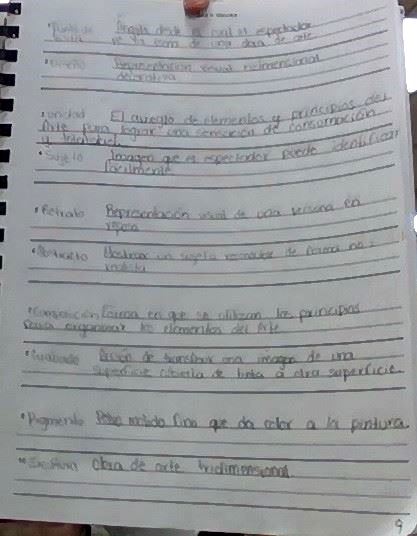 Punto de Ángulo desde el cual el espectador
vista ve la escena de una obra de arte
• Diseño Representación visual
decorativa
• Unidad El arreglo de elementos y principios del
Arte para lograr una sensación de consumación
y
• Sujeto Imagen que el espectador puede identificar
fácilmente
• Retrato Representación visual de una persona en
• Abstracto Mostrar un sujeto reconocible de forma no
realista
• Composición Forma en que se utilizan los principios
para organizar los elementos del Arte
• Grabado Acción de transferir una imagen de una
superficie cubierta de tinta a otra superficie
• Pigmento Polvo molido fino que da color a la pintura.
• Escultura Obra de arte tridimensional
9